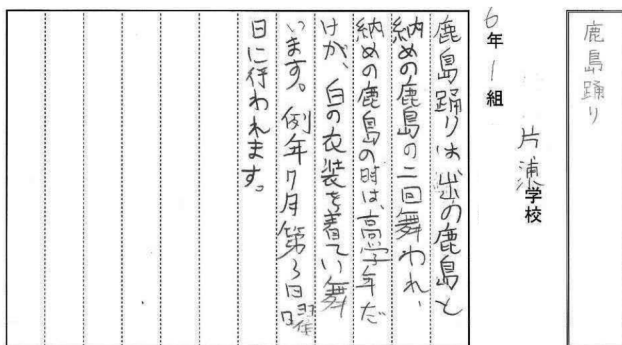 鹿島踊り
片浦学校
6年1組
鹿島踊りは出の鹿島と
納めの鹿島の二回舞われ、
納めの鹿島の時は、高学年だ
けが、白の衣装を着てい舞
います。例年7月第3日曜
日に行われます。